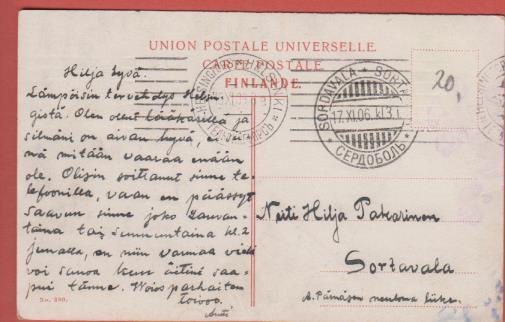 UNION POSTALE UNIVERSELLE.
CARTE POSTALE
FINLANDE.
SORDAVALA
17.XI.06.
СЕРДОБОЛЬ
20,
Hilja hyvä.
Lämpöisin tervehdys Helsin-
gistä. Olen ollut lääkärillä ja
silmäni on aivan hyvä, ei
mä mitään vaaraa enään
ole. Olisin soittanut sinne te-
lefoonilla, vaan en päässyt
Saavun sinne joko lauvan-
taina tai sunnuntaina kl. 2
junalla, en niin varmaa vielä
voi sanoa kun äitini saa-
pui tänne. Vois parhaiten
toivoo.
Neiti Hilja Pakarinen
Sortavala